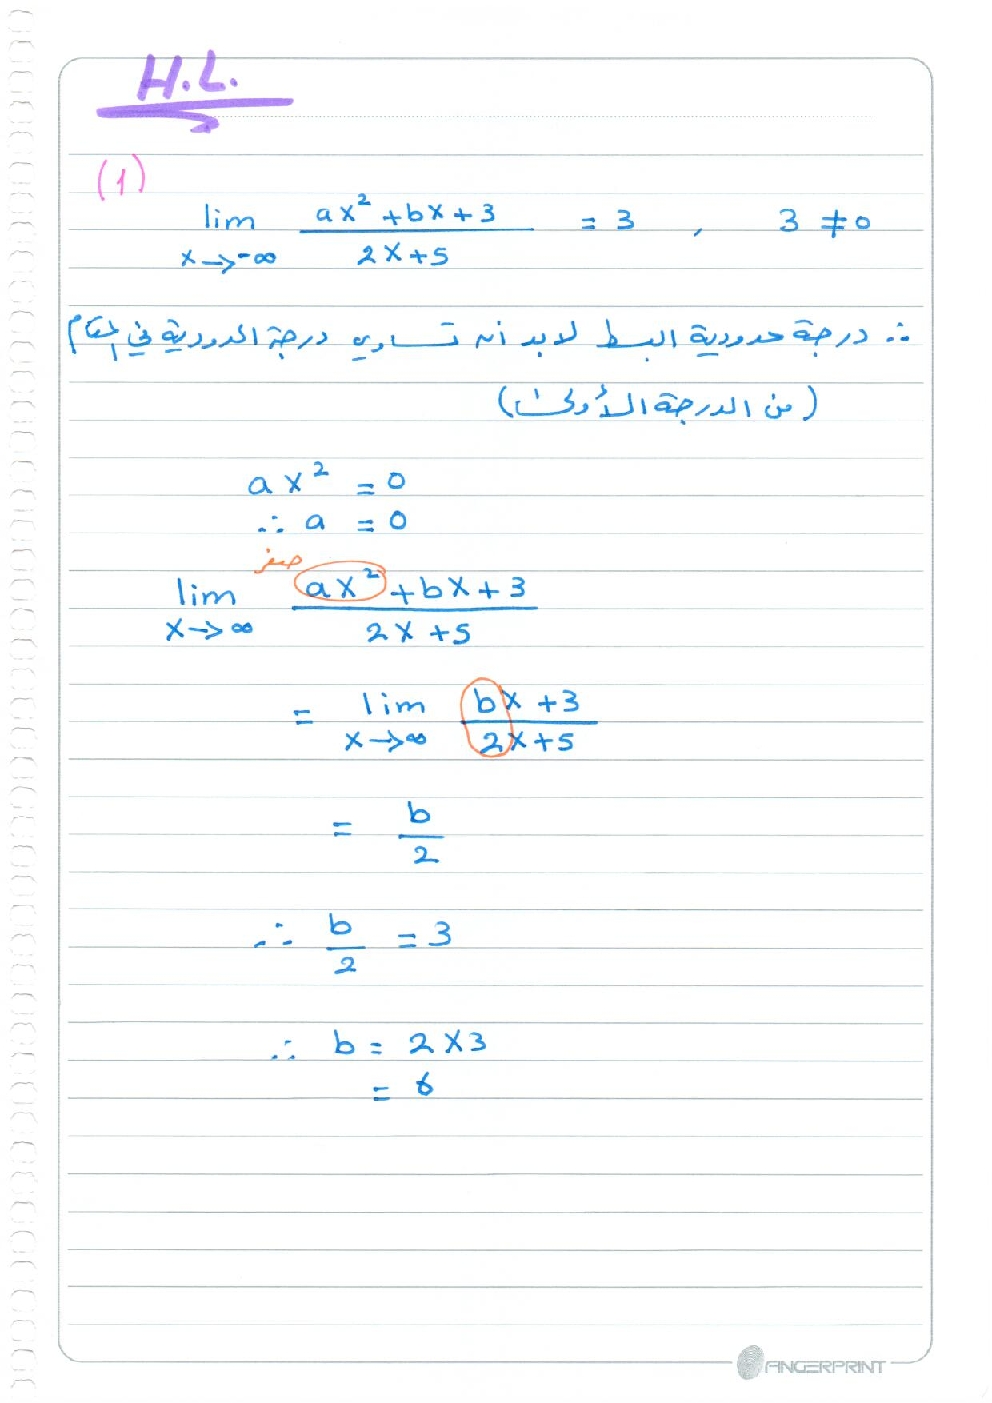 H.L.
(1)
lim ax² + bx + 3 = 3 , 3 ≠ 0
x → -∞ 2x + 5
∴ درجة حدودية البسط لا بد أن تساوي درجة الحدودية في المقام
(من الدرجة الأولى)
ax² = 0
∴ a = 0
صفر
lim ax² + bx + 3
x → ∞ 2x + 5
= lim bx + 3
x → ∞ 2x + 5
= b
2
∴ b = 3
2
∴ b = 2 x 3
= 6
FINGERPRINT